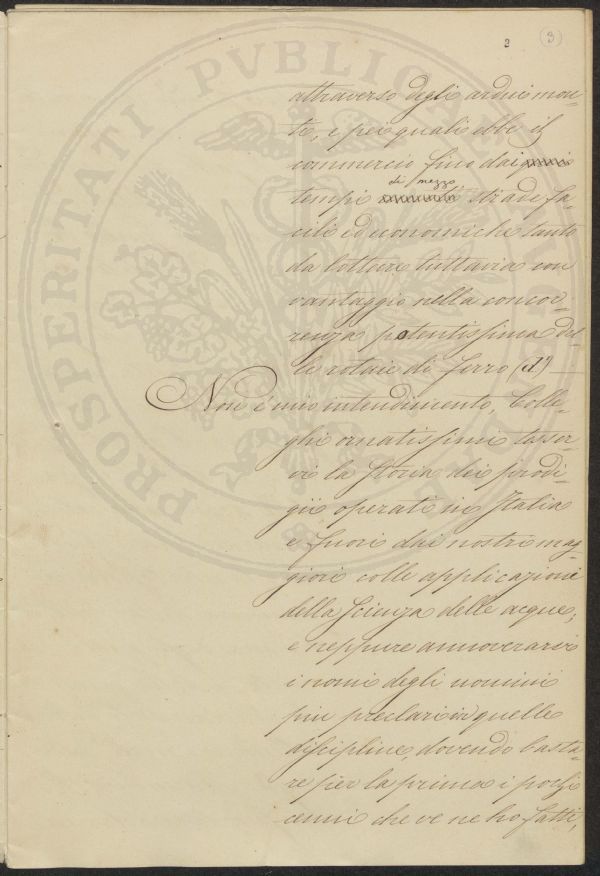 3 (3)
attraverso degli ardui mon-
ti, e pei quali ebbe il
commercio fino dai primi
di mezzo
tempi strade fa-
cili ed economiche tanto
da lottare tuttavia con
vantaggio nella concor-
renza potentissima del-
le rotaie di ferro (1)
Non è mio intendimento, Colle-
ghi ornatissimi tesser-
vi la storia dei prodi-
gii operati in Italia
e fuori dai nostri mag-
giori colle applicazioni
della scienza delle acque,
e neppure annoverarvi
i nomi degli uomini
piu preclari in quelle
discipline, dovendo basta-
re per la prima i pochi
cenni che ve ne ho fatti,
PROSPERITATI PVBLICAE